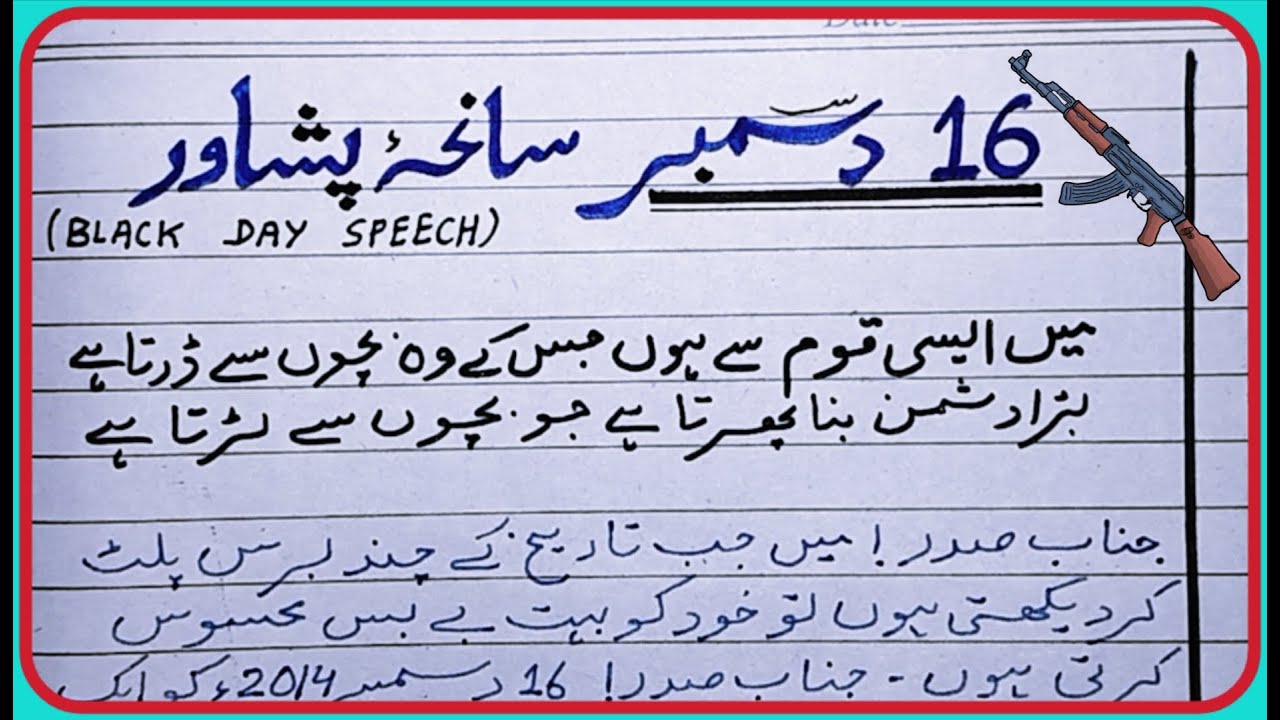 Date
16 دسمبر سانحۂ پشاور
(BLACK DAY SPEECH)
میں ایسی قوم سے ہوں جس کے وہ بچوں سے ڈرتا ہے
بڑا دشمن بنا پھرتا ہے جو بچوں سے لڑتا ہے
جناب صدر! میں جب تاریخ کے چند برس پلٹ
کر دیکھتی ہوں تو خود کو بہت بے بس محسوس
کرتی ہوں - جناب صدر! 16 دسمبر 2014ء کو ایک